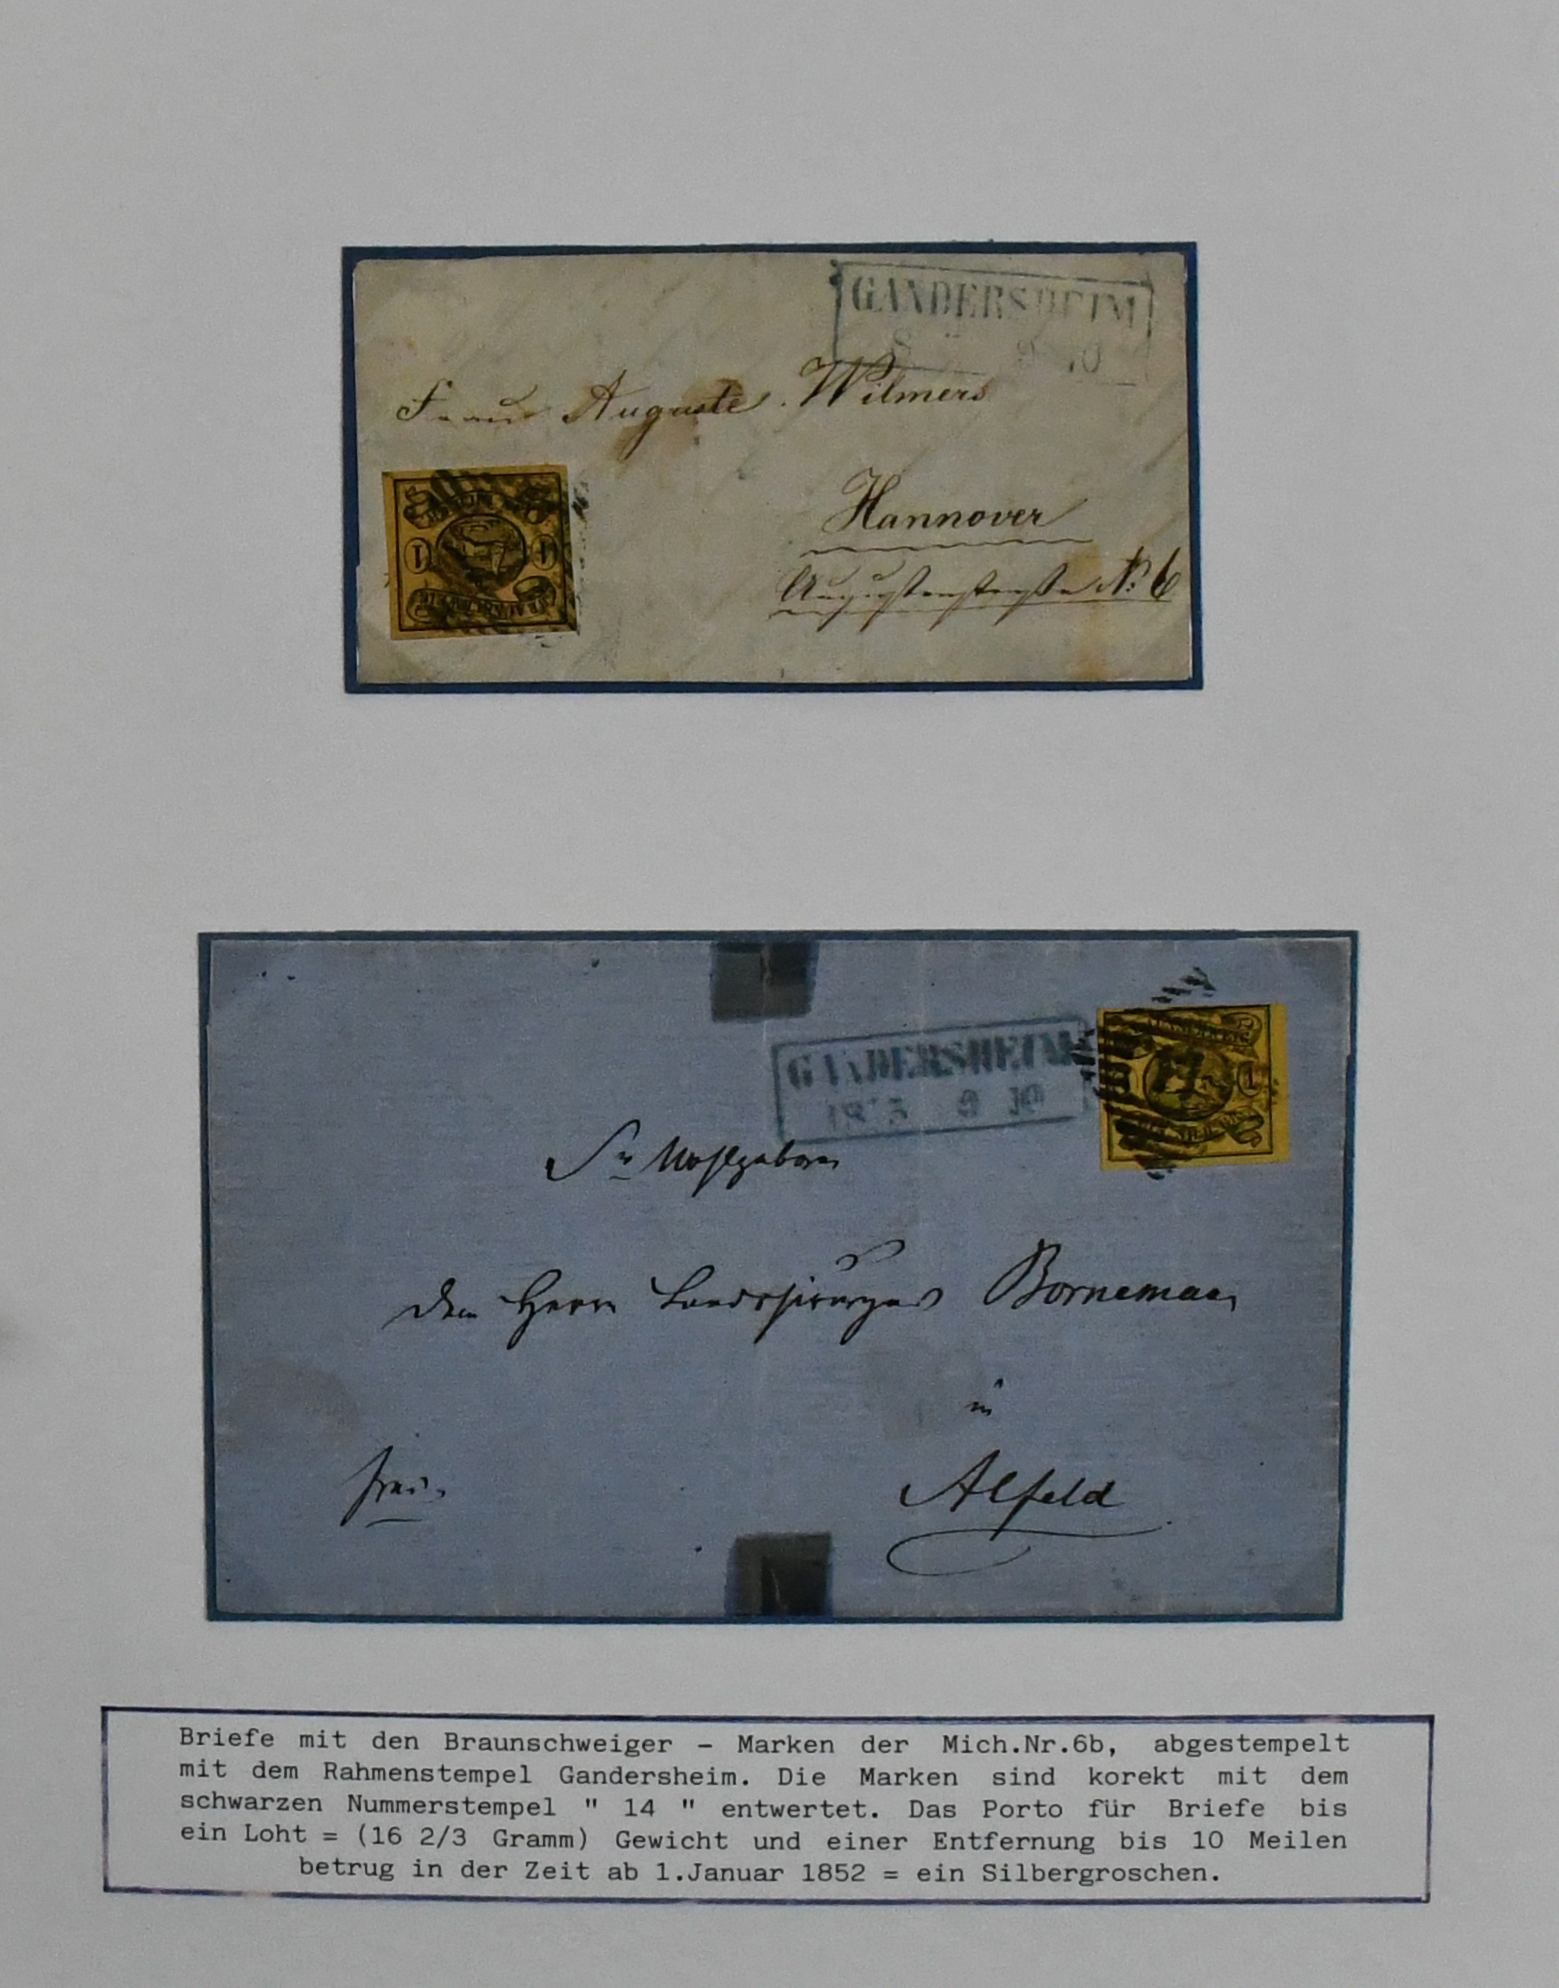 GANDERSHEIM
8 9 10
Frau Auguste Wilmers
Hannover
Augustenstraße No. 6
1 1
GANDERSHEIM
9 10
1
Sr Wohlgeboren
dem Herrn Bornemann
in
Alfeld
Briefe mit den Braunschweiger – Marken der Mich.Nr.6b, abgestempelt
mit dem Rahmenstempel Gandersheim. Die Marken sind korekt mit dem
schwarzen Nummerstempel " 14 " entwertet. Das Porto für Briefe bis
ein Loht = (16 2/3 Gramm) Gewicht und einer Entfernung bis 10 Meilen
betrug in der Zeit ab 1.Januar 1852 = ein Silbergroschen.